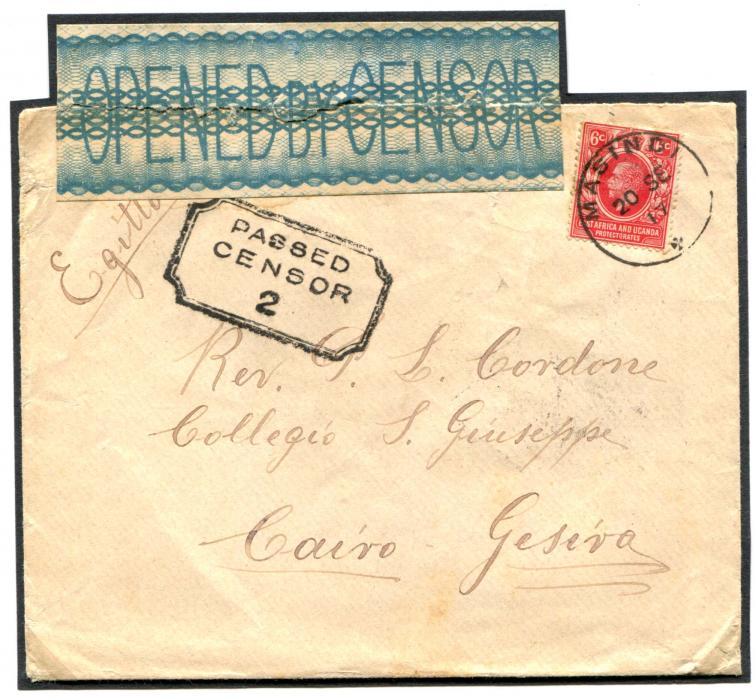 OPENED BY CENSOR
6c 6c
EAST AFRICA AND UGANDA
PROTECTORATES
MASINDI
20 SE
17
Egitto
PASSED
CENSOR
2
Rev. P. L. Cordone
Collegio S. Giuseppe
Cairo - Gesira